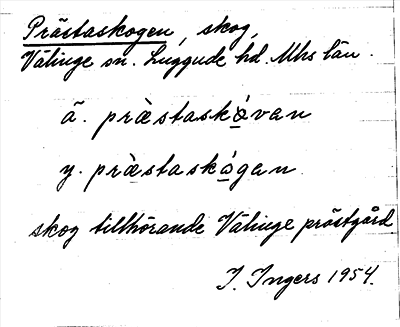 Prästaskogen, skog,
Välinge sn. Luggude hd. Mhs län.
ä. prästaskåvan
y. prästaskågen
skog tillhörande Välinge prästgård
I. Ingers 1954.